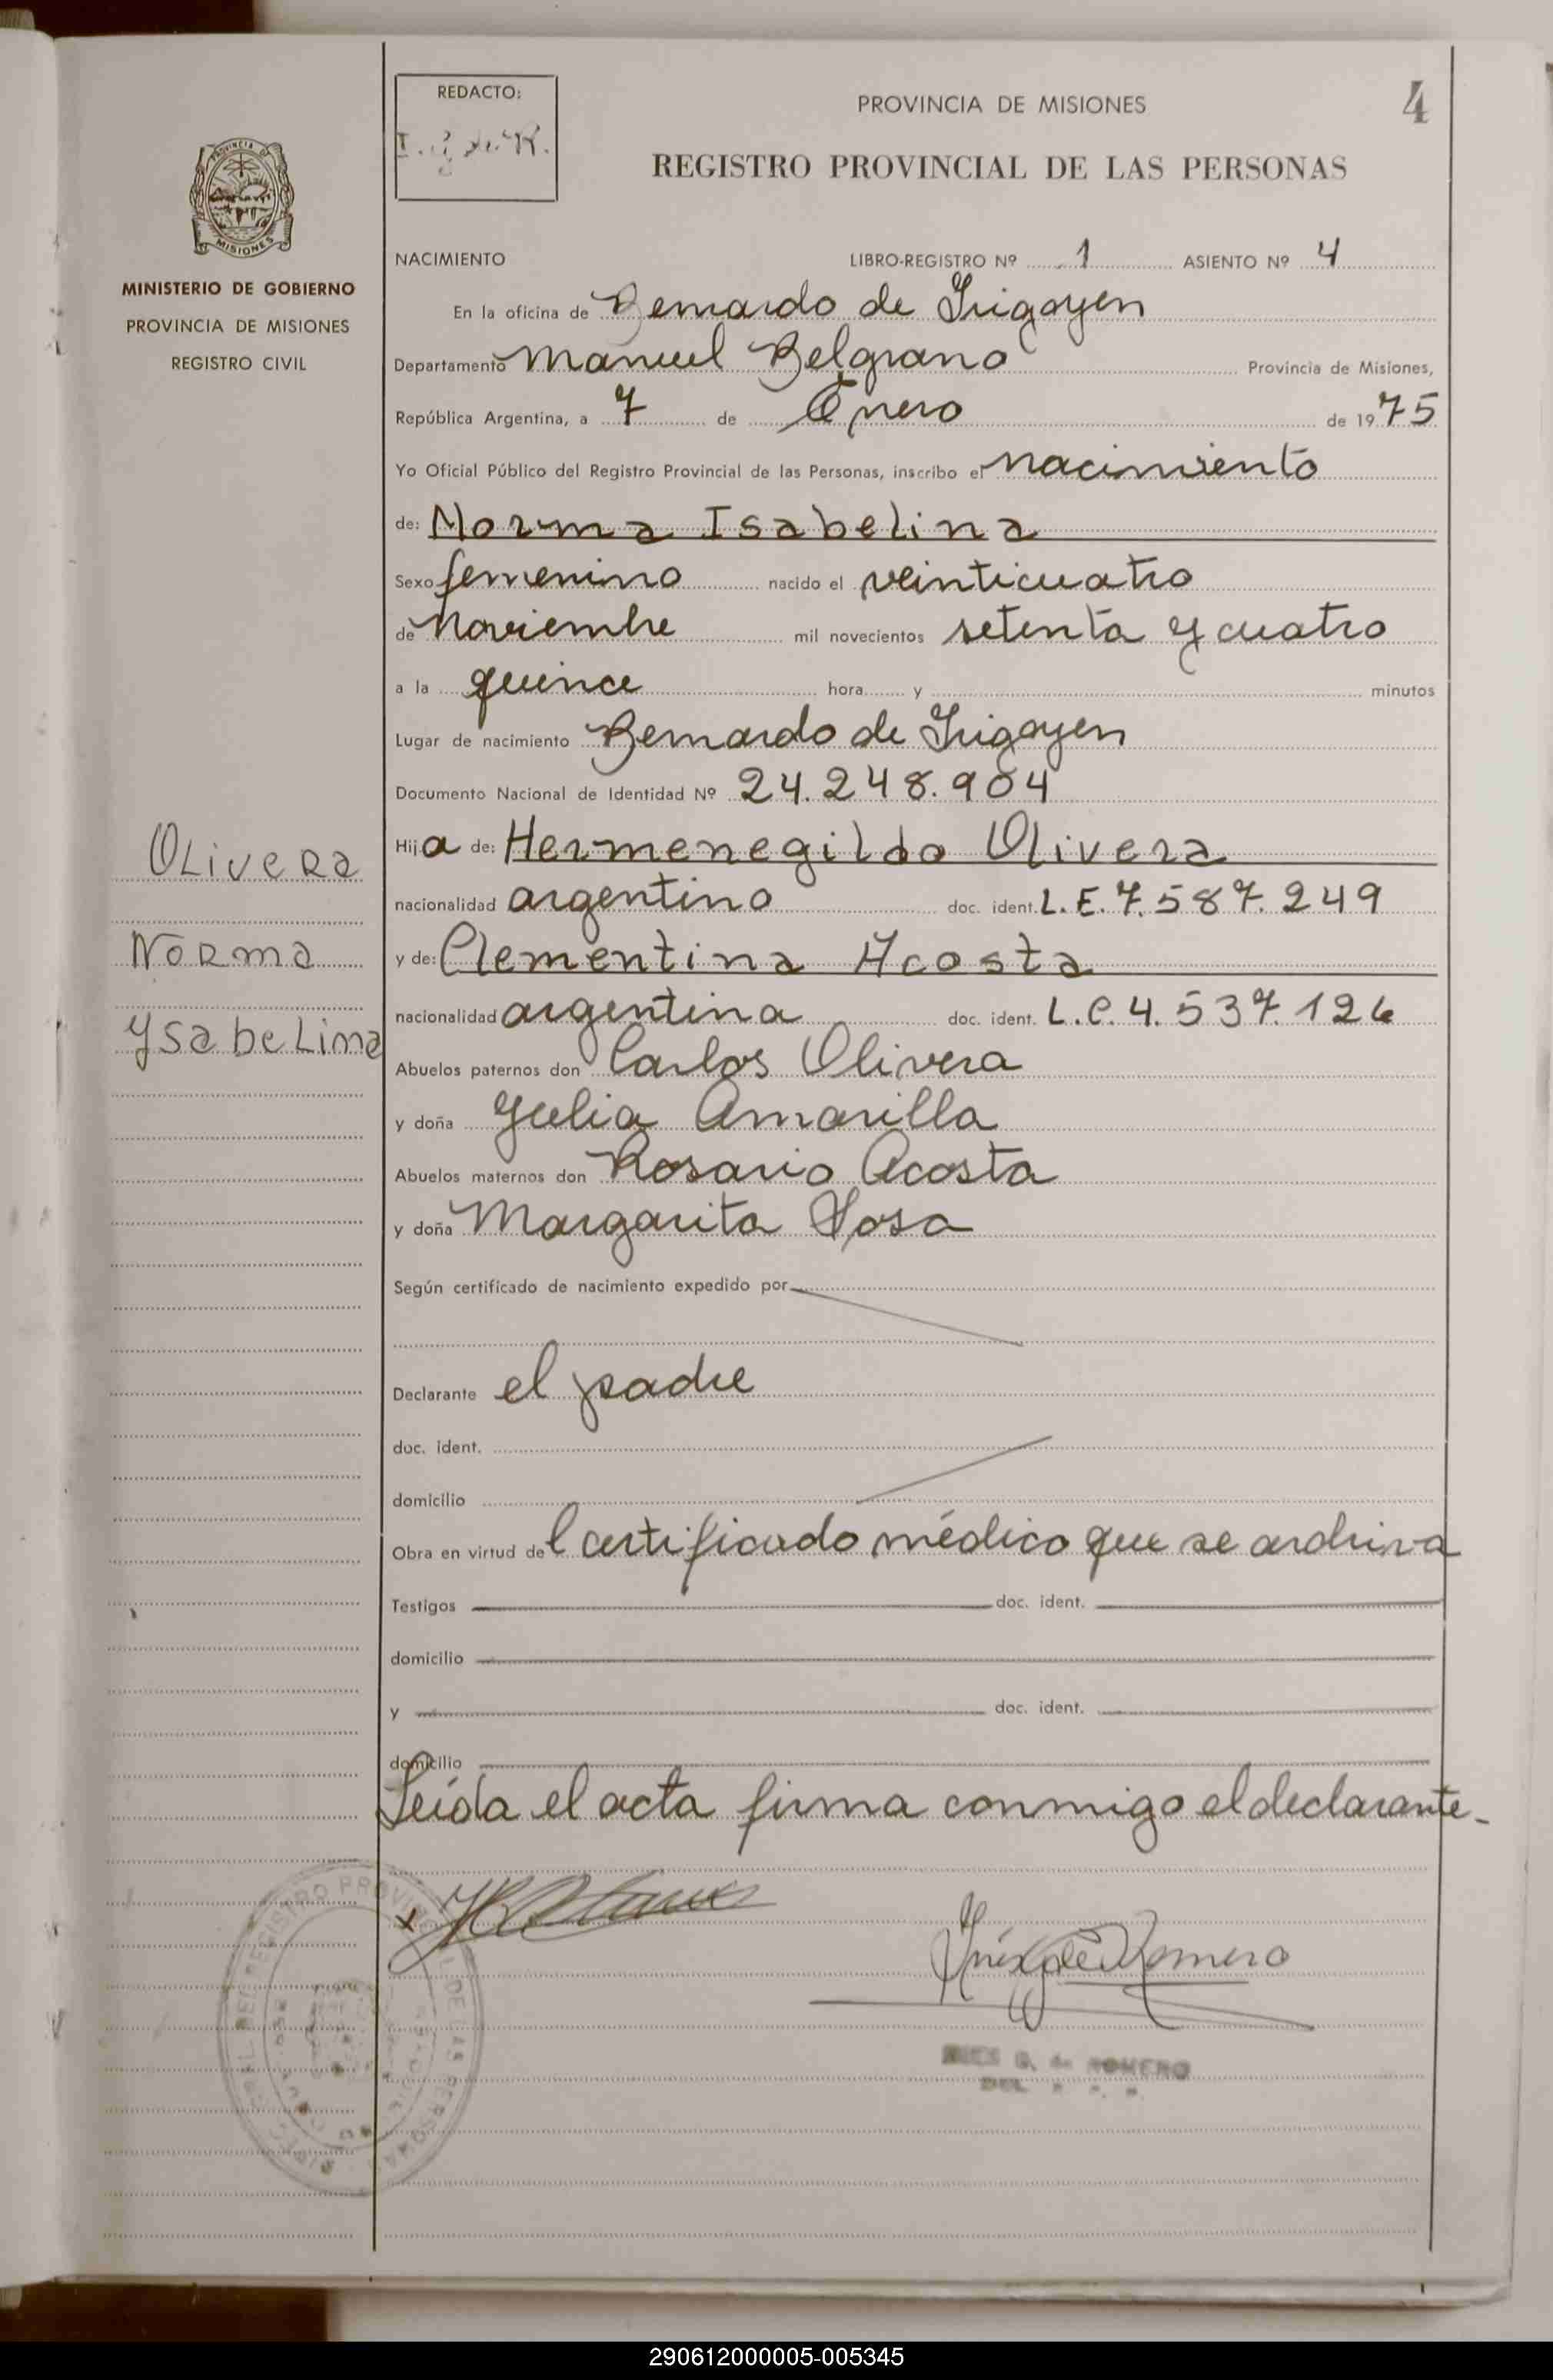 REDACTO:
PROVINCIA DE MISIONES
4
REGISTRO PROVINCIAL DE LAS PERSONAS
PROVINCIA DE
MISIONES
MINISTERIO DE GOBIERNO
PROVINCIA DE MISIONES
REGISTRO CIVIL
NACIMIENTO LIBRO-REGISTRO Nº 1 ASIENTO Nº 4
En la oficina de Bernardo de Irigoyen
Departamento Manuel Belgrano Provincia de Misiones,
República Argentina, a 7 de Enero de 1975
Yo Oficial Público del Registro Provincial de las Personas, inscribo el nacimiento
de: Norma Isabelina
Sexo femenino nacido el veinticuatro
de Noviembre mil novecientos setenta y cuatro
a la quince hora y minutos
Lugar de nacimiento Bernardo de Irigoyen
Documento Nacional de Identidad Nº 24.248.904
Hija de: Hermenegildo Olivera
nacionalidad argentino doc. ident. L.E. 7.587.249
y de: Clementina Acosta
nacionalidad argentina doc. ident. L.C. 4.537.126
Abuelos paternos don Carlos Olivera
y doña Julia Amarilla
Abuelos maternos don Rosario Acosta
y doña Margarita Sosa
Según certificado de nacimiento expedido por
Declarante el padre
doc. ident.
domicilio
Obra en virtud del certificado médico que se archiva
Testigos doc. ident.
domicilio
y doc. ident.
domicilio
Leída el acta firma conmigo el declarante.
Olivera
Norma
Ysabelina
x
Inés G de Romero
INES G. de ROMERO
REGISTRO PROVINCIAL DE LAS PERSONAS
290612000005-005345